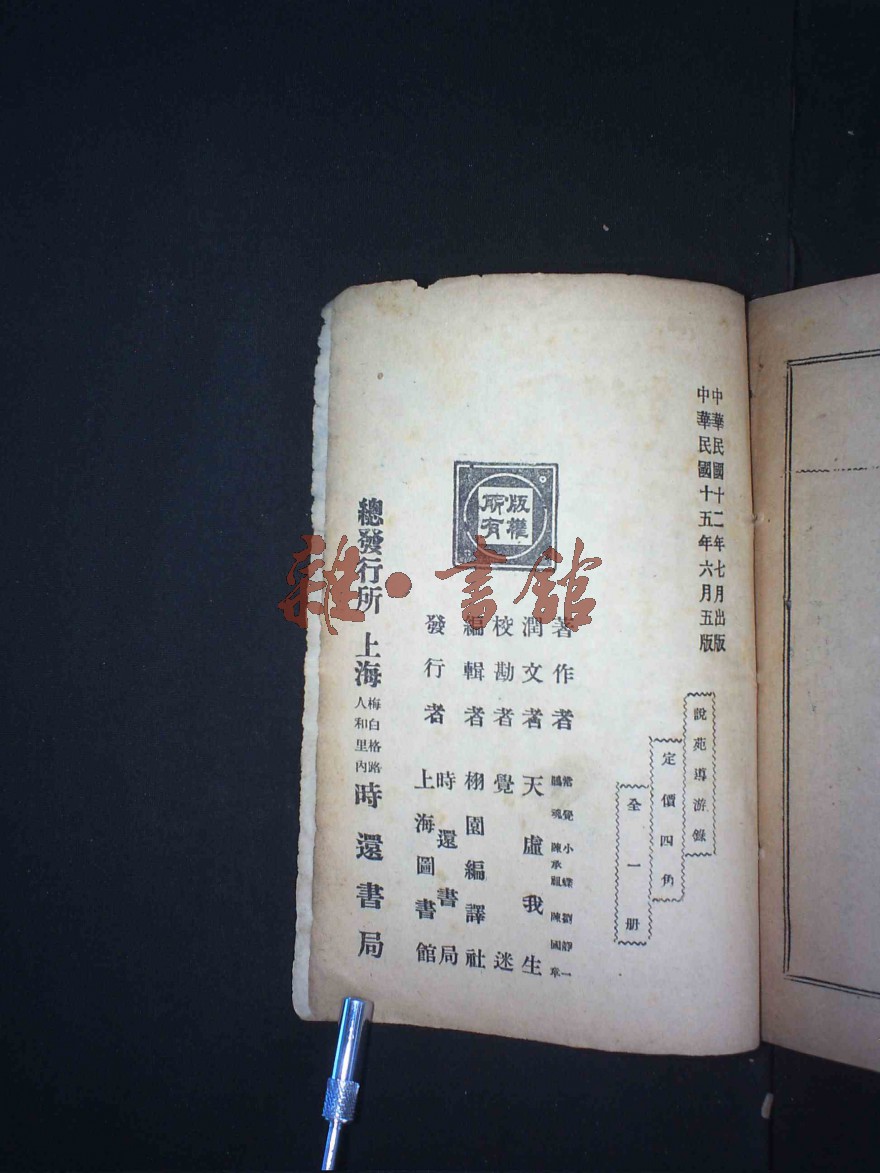 中華民國十二年七月出版
中華民國十五年六月五版
說苑導游錄
定價四角
全一册
著作者
常覺 小蝶 劉靜一
陳承祖 陳國章
潤文者 天虛我生
校勘者 覺迷
編輯者 栩園編譯社
發行者
時還書局
上海圖書館
總發行所 上海
梅白格路
人和里內
時還書局
版權
所有
雜·書館